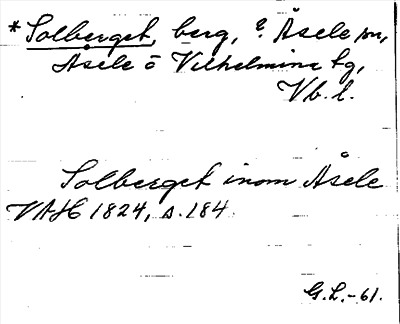 *Solberget, berg, ? Åsele sn,
Åsele o Vilhelmina tg,
Vb. l.
Solberget inom Åsele
VAH 1824, s. 184.
G.L.-61.